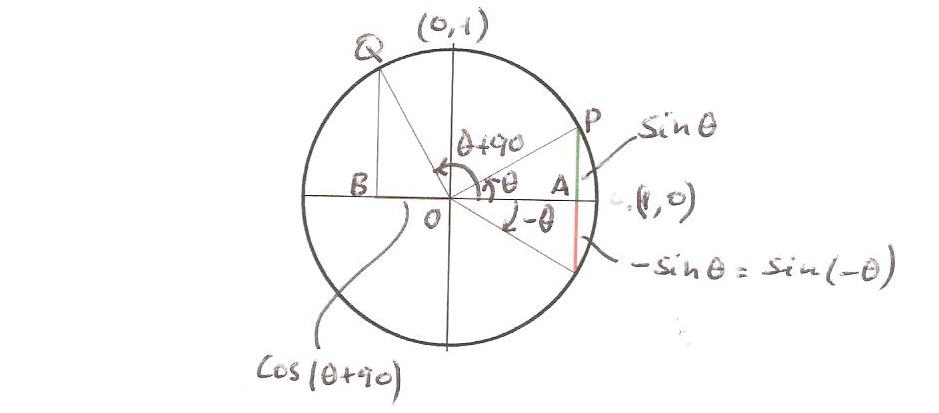 (0,1)
Q
P
sin θ
θ+90
θ
B
A
(1,0)
O
-θ
-sin θ = sin(-θ)
Cos(θ+90)